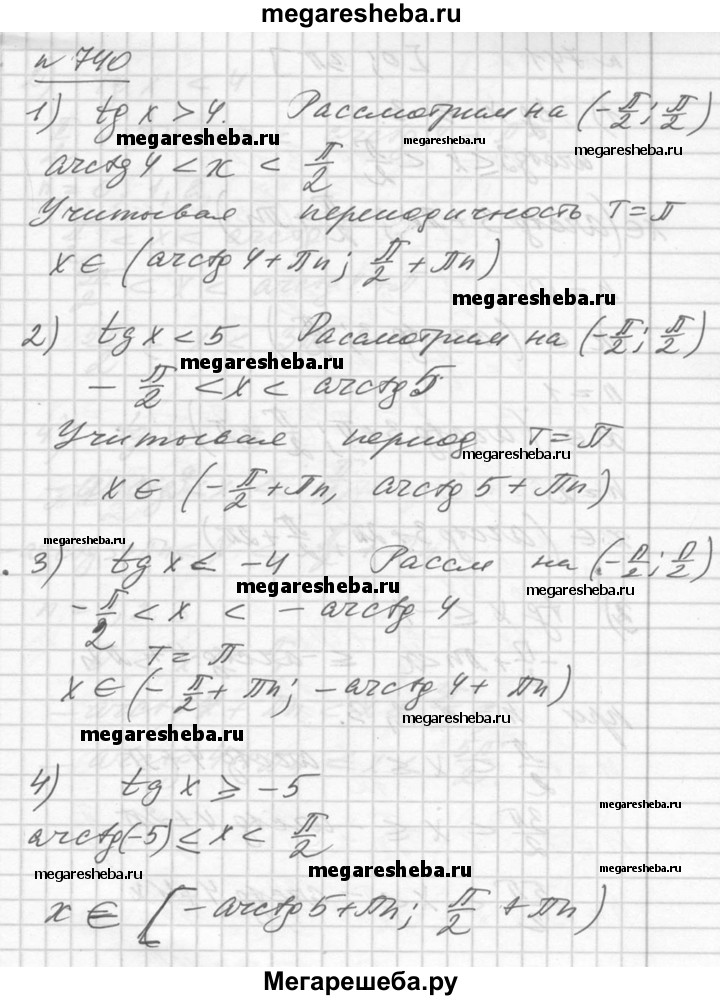 megaresheba.ru
n 740
1) tg x > 4. Рассмотрим на (-π/2; π/2)
megaresheba.ru
megaresheba.ru
arctg 4 < x < π/2
Учитывая периодичность T = π
x ∈ (arctg 4 + πn; π/2 + πn)
megaresheba.ru
2) tg x < 5 Рассмотрим на (-π/2; π/2)
megaresheba.ru
-π/2 < x < arctg 5
Учитывая период T = π
megaresheba.ru
x ∈ (-π/2 + πn, arctg 5 + πn)
megaresheba.ru
3) tg x < -4 Рассм на (-π/2; π/2)
megaresheba.ru
megaresheba.ru
-π/2 < x < -arctg 4
T = π
x ∈ (-π/2 + πn; -arctg 4 + πn)
megaresheba.ru
megaresheba.ru
4) tg x ≥ -5
megaresheba.ru
arctg(-5) ≤ x < π/2
megaresheba.ru
megaresheba.ru
megaresheba.ru
x ∈ [-arctg 5 + πn; π/2 + πn)
Мегарешеба.ру